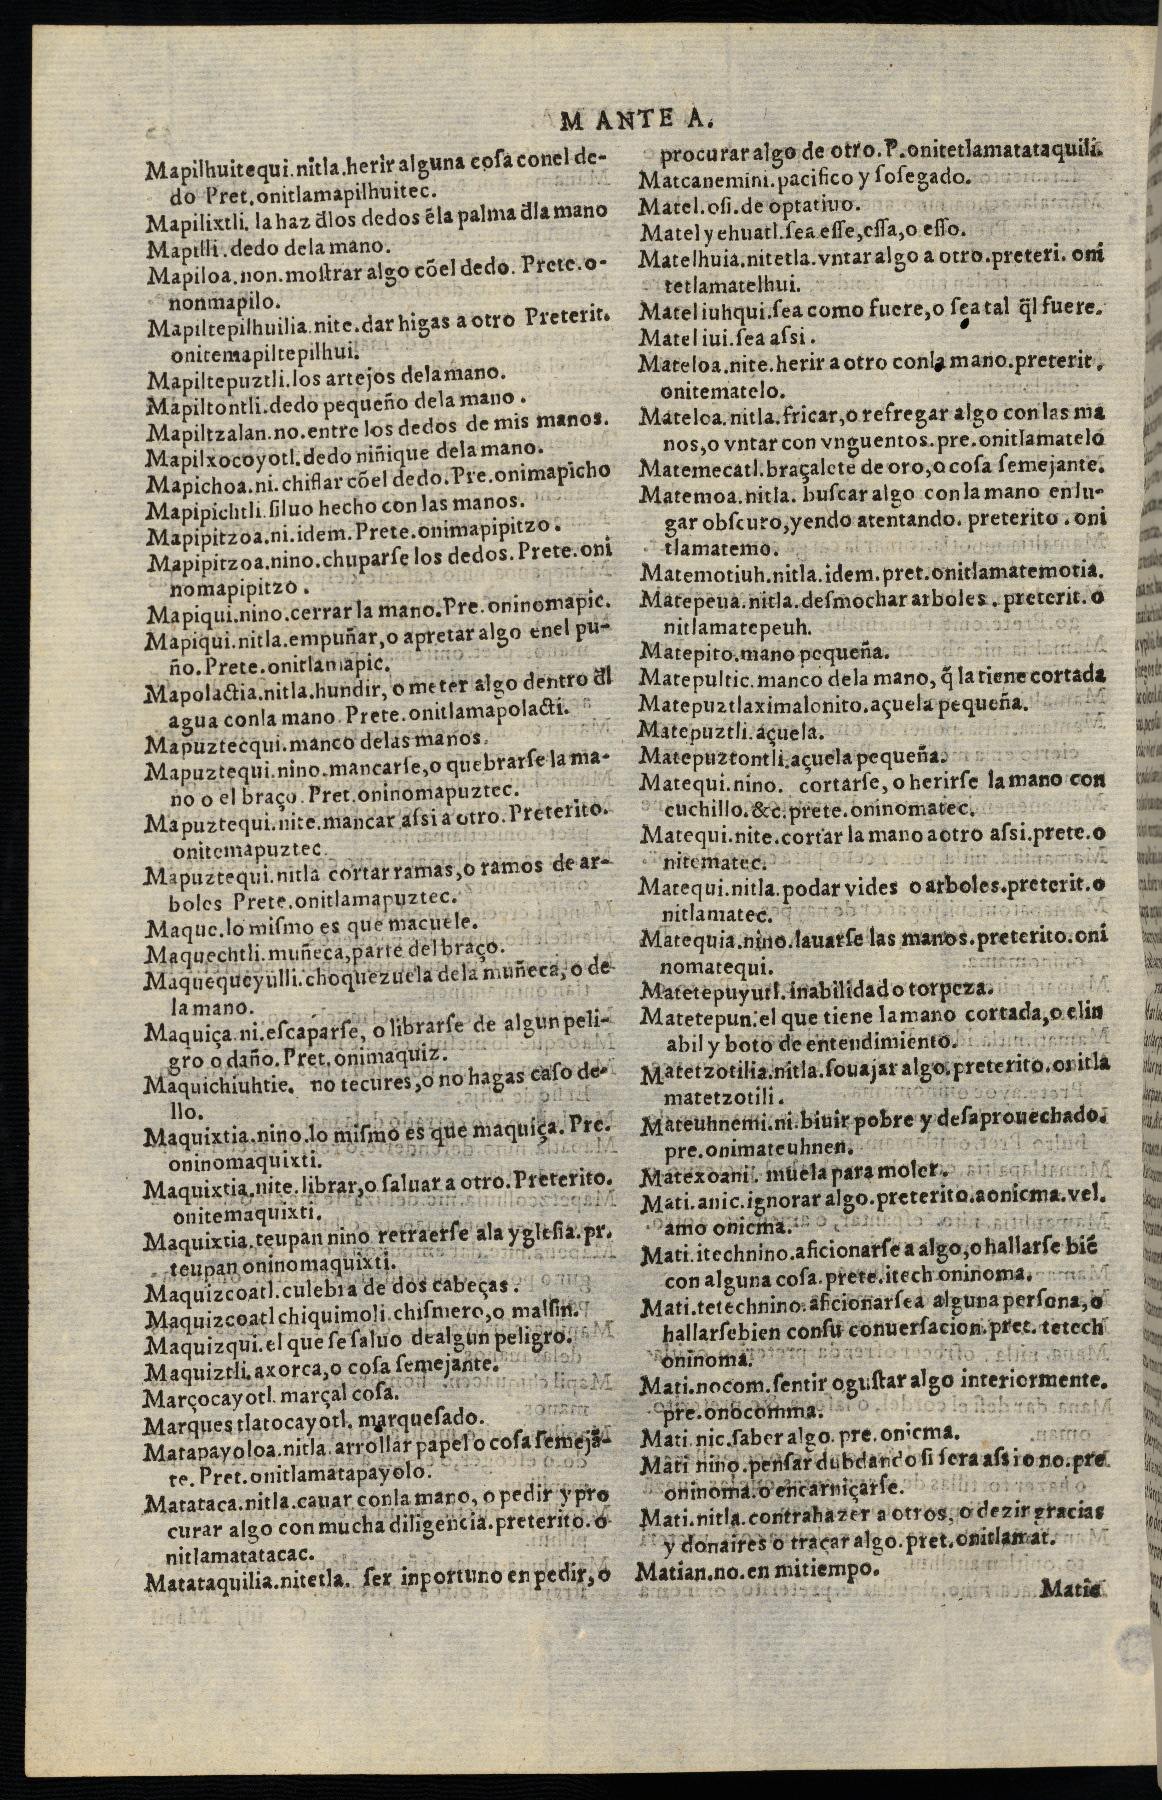 M ANTE A.
Mapilhuitequi.nitla.herir alguna cosa conel de-
do Pret.onitlamapilhuitec.
Mapilixtli. la haz d̄los dedos ẽla palma d̄la mano
Mapilli.dedo dela mano.
Mapiloa.non.mostrar algo cõel dedo. Prete.o-
nonmapilo.
Mapiltepilhuilia.nite.dar higas a otro Preterit.
onitemapiltepilhui.
Mapiltepuztli.los artejos dela mano.
Mapiltontli.dedo pequeño dela mano.
Mapiltzalan.no.entre los dedos de mis manos.
Mapilxocoyotl.dedo niñique dela mano.
Mapichoa.ni.chiflar cõel dedo.Pre.onimapicho
Mapipichtli.siluo hecho con las manos.
Mapipitzoa.ni.idem.Prete.onimapipitzo.
Mapipitzoa.nino.chuparse los dedos.Prete.oni
nomapipitzo.
Mapiqui.nino.cerrar la mano.Pre.oninomapic.
Mapiqui.nitla.empuñar,o apretar algo enel pu-
ño.Prete.onitlamapic.
Mapolactia.nitla.hundir, o meter algo dentro d̄l
agua conla mano Prete.onitlamapolacti.
Mapuztecqui.manco delas manos.
Mapuztequi.nino.mancarse,o quebrarse la ma-
no o el braço.Pret.oninomapuztec.
Mapuztequi.nite.mancar assi a otro.Preterito.
onitemapuztec.
Mapuztequi.nitla cortar ramas,o ramos de ar-
boles Prete.onitlamapuztec.
Maque.lo mismo es que macuele.
Maquechtli.muñeca,parte del braço.
Maquequeyulli.choquezuela dela muñeca, o de
la mano.
Maquiça.ni.escaparse, o librarse de algun peli-
gro o daño.Pret.onimaquiz.
Maquichiuhtie. no tecures,o no hagas caso de-
llo.
Maquixtia.nino.lo mismo es que maquiça. Pre.
oninomaquixti.
Maquixtia.nite.librar,o saluar a otro.Preterito.
onitemaquixti.
Maquixtia.teupan nino retraerse ala yglesia.pr.
teupan oninomaquixti.
Maquizcoatl.culebra de dos cabeças.
Maquizcoatl chiquimoli.chismero,o malsin.
Maquizqui.el que se saluo de algun peligro.
Maquiztli.axorca,o cosa semejante.
Marçocayotl.marçal cosa.
Marques tlatocayotl. marquesado.
Matapayoloa.nitla.arrollar papel o cosa semejã-
te. Pret.onitlamatapayolo.
Matataca.nitla.cauar conla mano, o pedir y pro
curar algo con mucha diligencia.preterito.o
nitlamatatacac.
Matataquilia.nitetla. ser inportuno en pedir,o
procurar algo de otro.P.onitetlamatataquili.
Matcanemini.pacifico y sosegado.
Matel.osi.de optatiuo.
Matel yehuatl.sea esse,essa,o esso.
Matelhuia.nitetla.vntar algo a otro.preteri. oni
tetlamatelhui.
Matel iuhqui.sea como fuere,o sea tal q̃l fuere.
Matel iui.sea assi.
Mateloa.nite.herir a otro conla mano.preterit.
onitematelo.
Mateloa.nitla.fricar,o refregar algo con las ma
nos,o vntar con vnguentos.pre.onitlamatelo
Matemecatl.braçalete de oro,o cosa semejante.
Matemoa.nitla. buscar algo con la mano en lu-
gar obscuro,yendo atentando. preterito.oni
tlamatemo.
Matemotiuh.nitla.idem.pret.onitlamatemotia.
Matepeua.nitla.desmochar arboles. preterit.o
nitlamatepeuh.
Matepito.mano pequeña.
Matepultic.manco dela mano, q̃ la tiene cortada
Matepuztlaximalonito.açuela pequeña.
Matepuztli.açuela.
Matepuztontli.açuela pequeña.
Matequi.nino. cortarse, o herirse la mano con
cuchillo.&c.prete.oninomatec.
Matequi.nite.cortar la mano a otro assi.prete.o
nitematec.
Matequi.nitla.podar vides o arboles.preterit.o
nitlamatec.
Matequia.nino.lauarse las manos.preterito.oni
nomatequi.
Matetepuyutl.inabilidad o torpeza.
Matetepun.el que tiene la mano cortada,o el in
abil y boto de entendimiento.
Matetzotilia.nitla.souajar algo.preterito.onitla
matetzotili.
Mateuhnemi.ni.biuir pobre y desaprouechado.
pre.onimateuhnen.
Matexoani. muela para moler.
Mati.anic.ignorar algo.preterito.aonicma.vel.
amo onicma.
Mati.itechnino.aficionarse a algo,o hallarse biẽ
con alguna cosa.prete.itech oninoma.
Mati.tetechnino.aficionarse a alguna persona,o
hallarse bien consu conuersacion.pret. tetech
oninoma.
Mati.nocom.sentir o gustar algo interiormente.
pre.onocomma.
Mati.nic.saber algo.pre.onicma.
Mati nino.pensar dubdando si sera assi o no.pre
oninoma.o encarniçarse.
Mati.nitla.contrahazer a otros, o dezir gracias
y donaires o traçar algo.pret.onitlamat.
Matian.no.en mi tiempo.
Matie